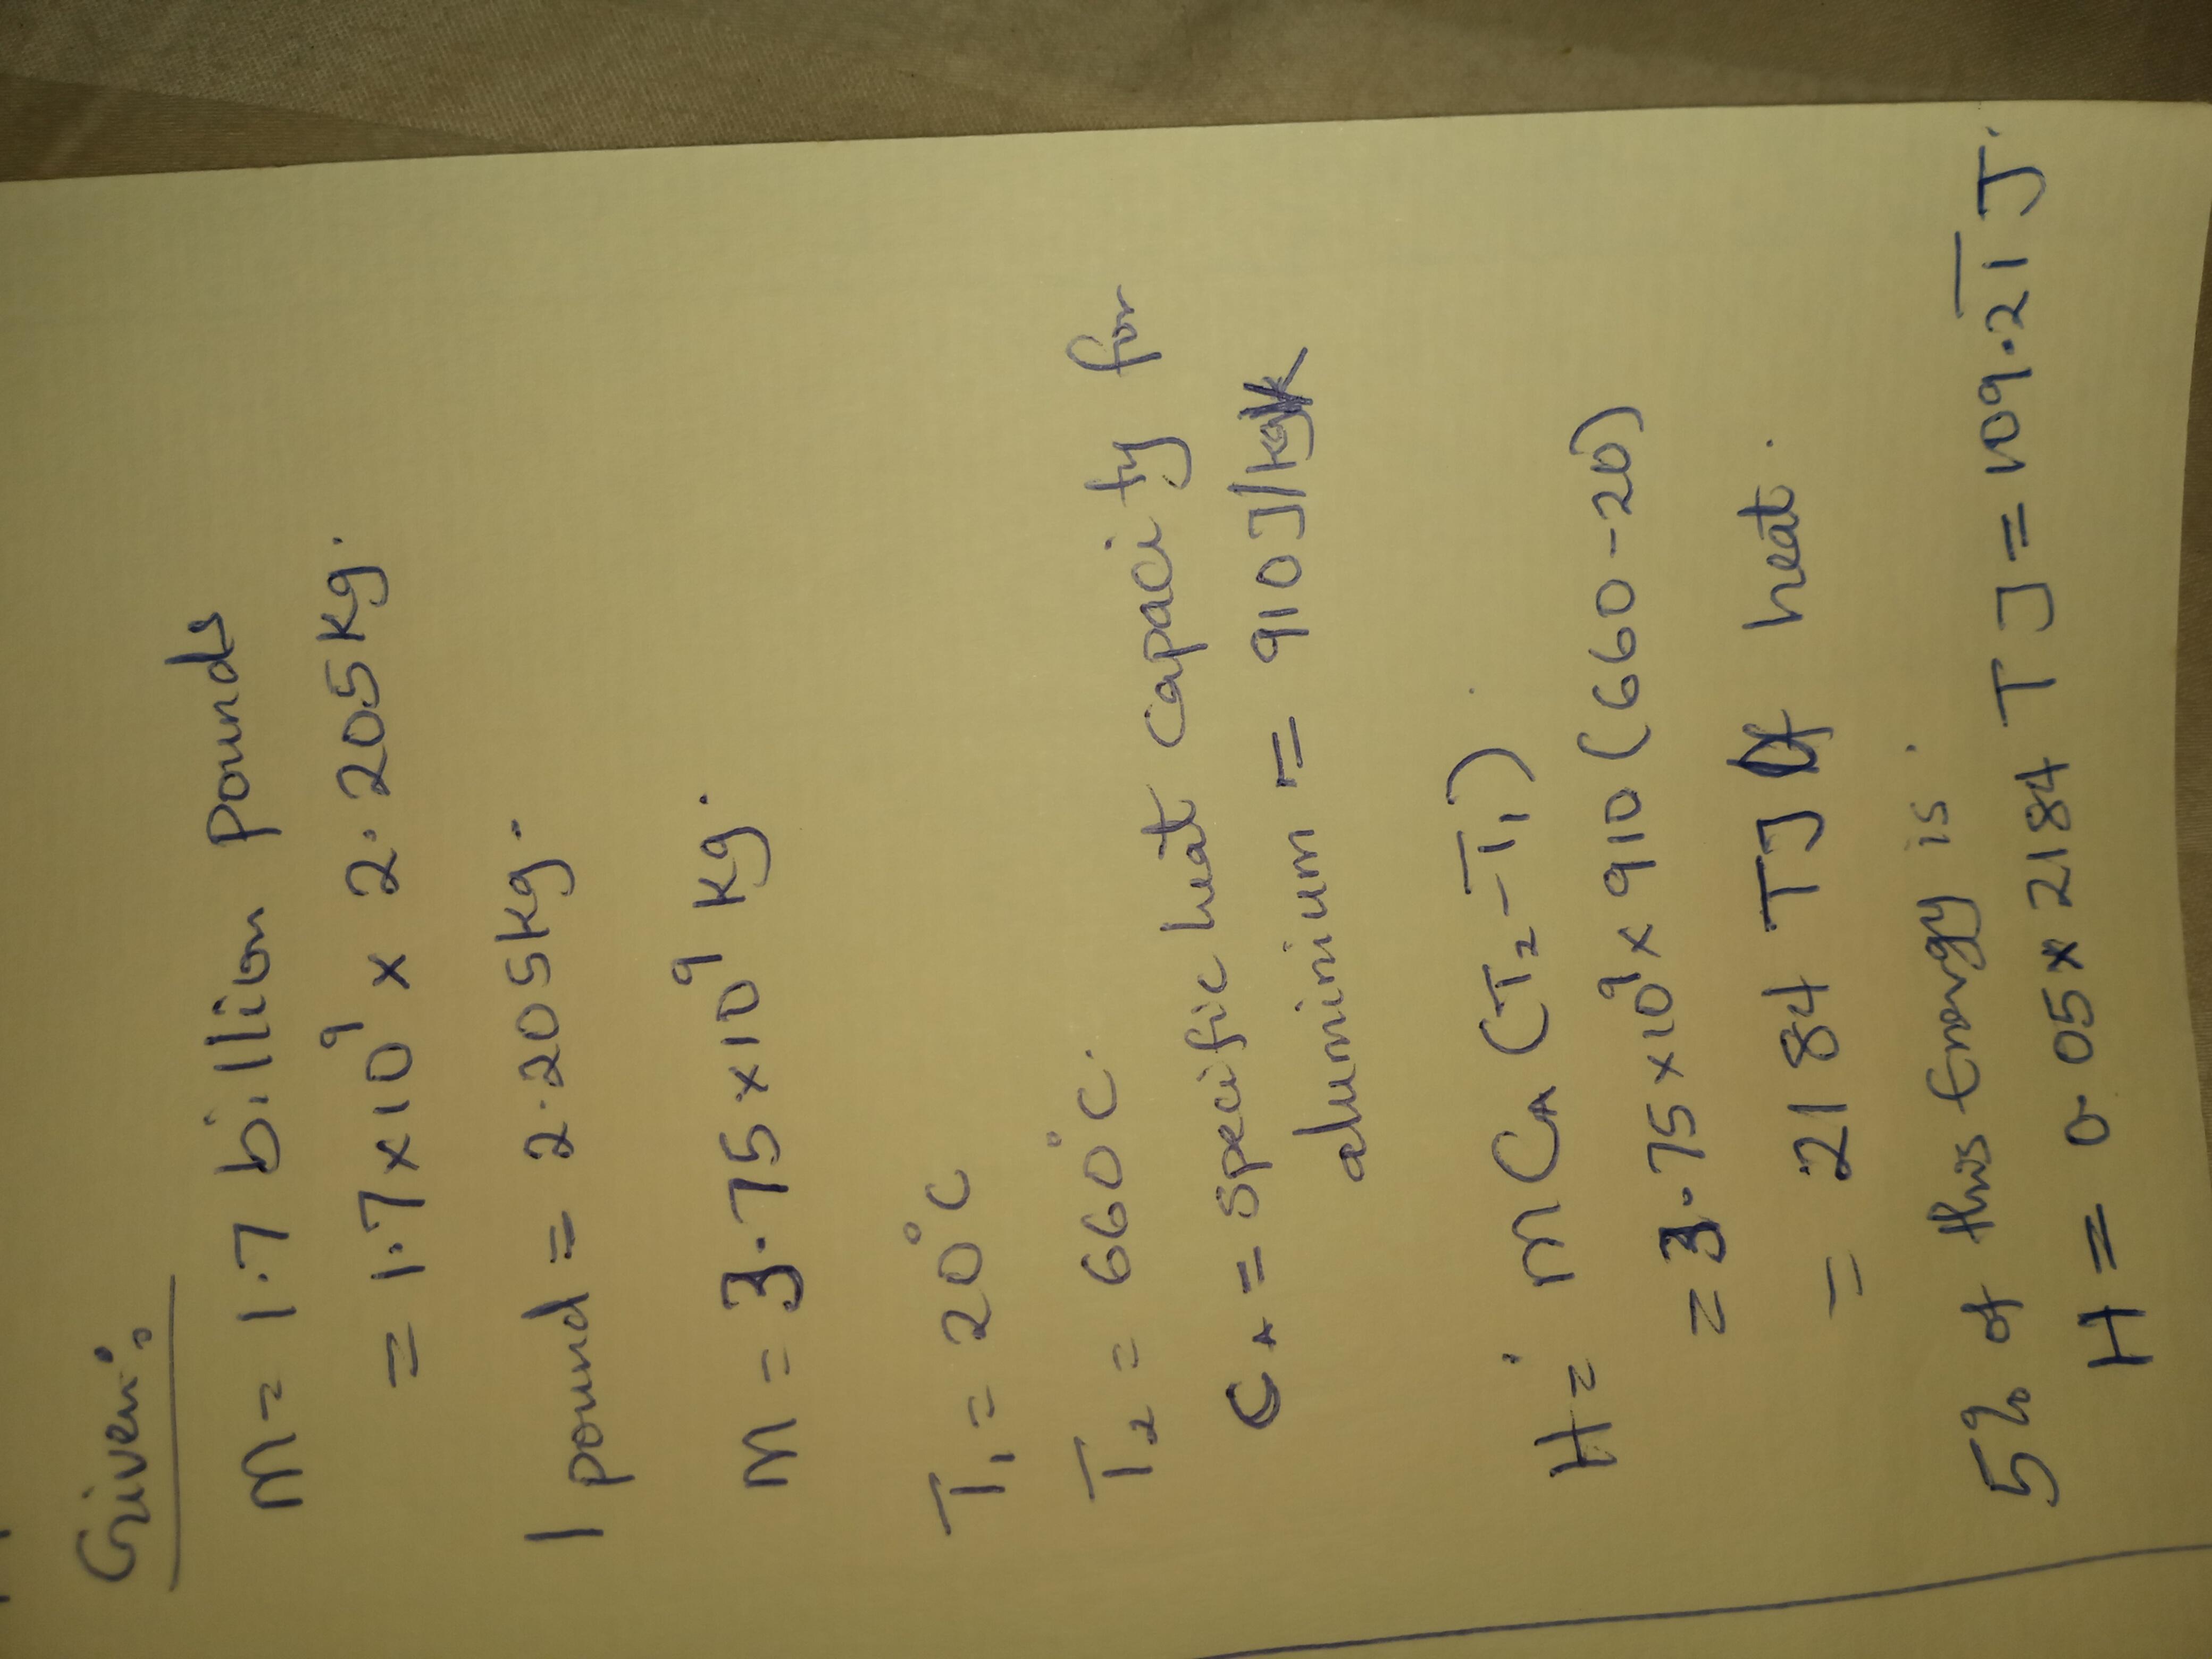 Given:
m = 1.7 billion pounds
= 1.7 × 10⁹ × 2.205 kg.
1 pound = 2.205 kg.
m = 3.75 × 10⁹ kg.
T₁ = 20°C
T₂ = 660°C.
C_A = specific heat capacity for
aluminium = 910 J/kgK
H = m C_A (T₂ - T₁)
= 3.75 × 10⁹ × 910 (660 - 20)
= 2184 TJ of heat.
5% of this Energy is
H = 0.05 × 2184 TJ = 109.2 TJ.